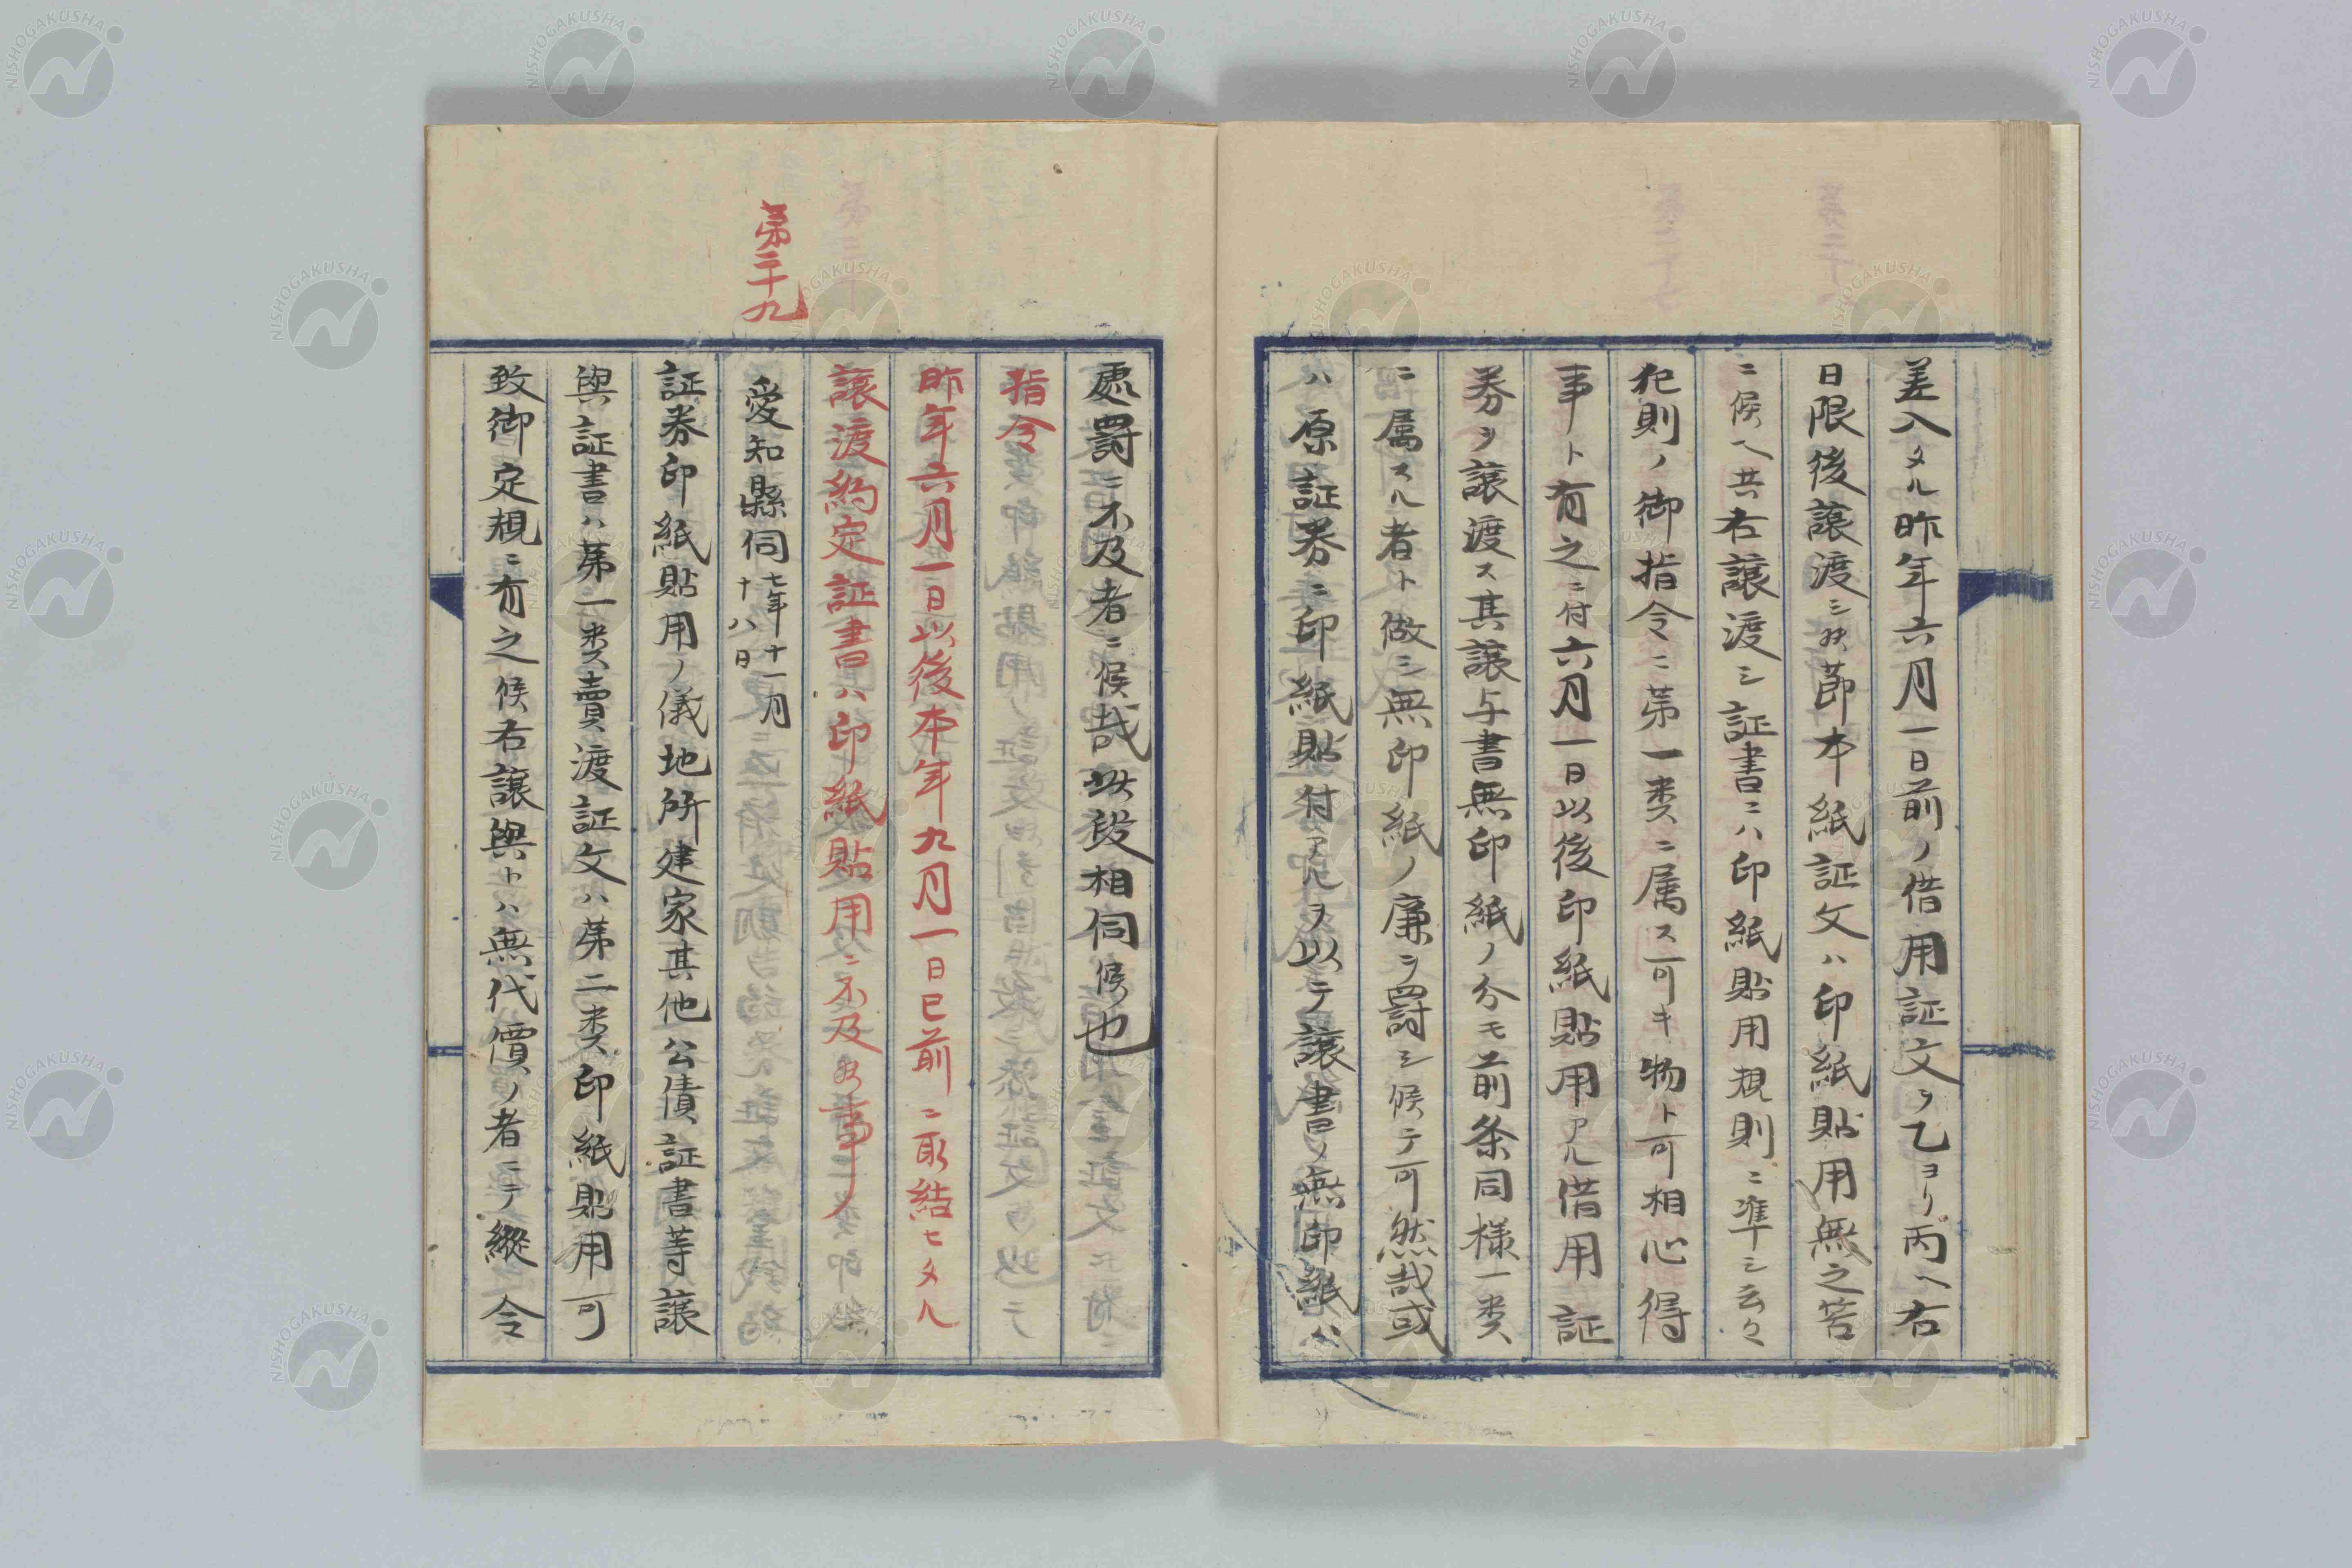 差入タル昨年六月一日前ノ借用証文ヲ乙ヨリ丙ヘ右
日限後譲渡シ候節本紙証文ハ印紙貼用無之筈
ニ候ヘ共右譲渡シ証書ニハ印紙貼用規則ニ準シ云々
犯則ノ御指令ニ第一類ニ属ス可キ物ト可相心得
事ト有之ニ付六月一日以後印紙貼用アル借用証
券ヲ譲渡ス其譲与書無印紙ノ分モ前条同様一類
ニ属スル者ト做シ無印紙ノ廉ヲ罰シ候テ可然哉或
ハ原証券ニ印紙貼付アルヲ以テ譲書ノ無印紙ハ
処罰ニ不及者ニ候哉此段相伺候也
指令
昨年六月一日以後本年九月一日已前ニ取結ヒタル
譲渡約定証書ハ印紙貼用ニ不及候事
第二十九
愛知縣伺七年十一月十八日
証券印紙貼用ノ儀地所建家其他公債証書等譲
與証書ハ第一類賣渡証文ハ第二類印紙貼用可
致御定規ニ有之候右譲與トハ無代價ノ者ニテ縦令
NISHOGAKUSHA